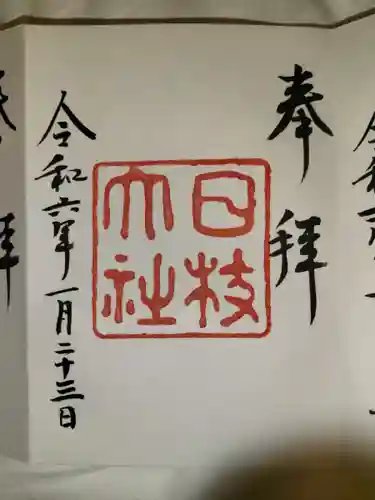 奉拝
日枝
大社
令和六年一月二十三日
拝